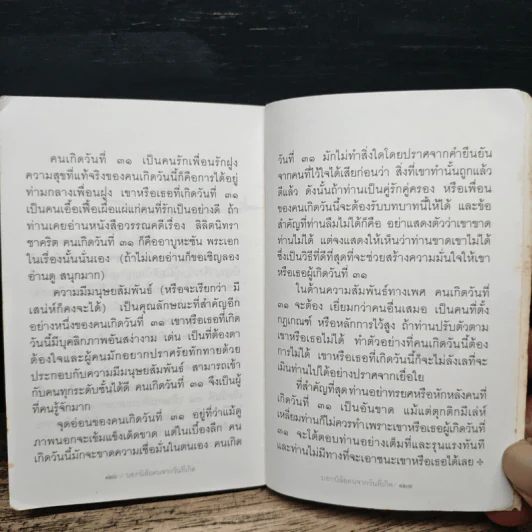 คนเกิดวันที่ ๓๑ เป็นคนรักเพื่อนรักฝูง
ความสุขที่แท้จริงของคนเกิดวันนี้ก็คือการได้อยู่
ท่ามกลางเพื่อนฝูง เขาหรือเธอที่เกิดวันที่ ๓๑
เป็นคนเอื้อเฟื้อเผื่อแผ่แก่คนที่รักเป็นอย่างดี ถ้า
ท่านเคยอ่านหนังสือวรรณคดีเรื่อง ลิลิตนิทรา
ชาคริต คนเกิดวันที่ ๓๑ ก็คืออาบูหะซัน พระเอก
ในเรื่องนั้นนั่นเอง (ถ้าไม่เคยอ่านก็ขอเชิญลอง
อ่านดู สนุกมาก)
ความมีมนุษยสัมพันธ์ (หรือจะเรียกว่า มี
เสน่ห์ก็คงจะได้) เป็นคุณลักษณะที่สำคัญอีก
อย่างหนึ่งของคนเกิดวันที่ ๓๑ เขาหรือเธอที่เกิด
วันนี้มีบุคลิกภาพอันสง่างาม เด่น เป็นที่ต้องตา
ต้องใจและผู้คนมักอยากปราศรัยทักทายด้วย
ประกอบกับความมีมนุษยสัมพันธ์ สามารถเข้า
กับคนทุกระดับชั้นได้ดี คนเกิดวันที่ ๓๑ จึงเป็นผู้
ที่คนรู้จักมาก
จุดอ่อนของคนเกิดวันที่ ๓๑ อยู่ที่ว่าแม้ดู
ภาพนอกจะเข้มแข็งเด็ดขาด แต่ในเบื้องลึก คน
เกิดวันนี้มักจะขาดความเชื่อมั่นในตนเอง คนเกิด
บอกนิสัยคนจากวันที่เกิด
วันที่ ๓๑ มักไม่ทำสิ่งใดโดยปราศจากคำยืนยัน
จากคนที่ไว้ใจได้เสียก่อนว่า สิ่งที่เขาทำนั้นถูกแล้ว
ดีแล้ว ดังนั้นถ้าท่านเป็นคู่รักคู่ครอง หรือเพื่อน
ของคนเกิดวันนี้จะต้องรับบทบาทนี้ให้ได้ และข้อ
สำคัญที่ท่านลืมไม่ได้ก็คือ อย่าแสดงตัวว่าเขาขาด
ท่านไม่ได้ แต่จงแสดงให้เห็นว่าท่านขาดเขาไม่ได้
ซึ่งเป็นวิธีที่ดีที่สุดที่จะช่วยสร้างความมั่นใจให้เขา
หรือเธอผู้เกิดวันที่ ๓๑
ในด้านความสัมพันธ์ทางเพศ คนเกิดวันที่
๓๑ จะต้อง เยี่ยมกว่าคนอื่นเสมอ เป็นคนที่ตั้ง
กฎเกณฑ์ หรือหลักการไว้สูง ถ้าท่านปรับตัวตาม
เขาหรือเธอไม่ได้ ทำตัวอย่างที่คนเกิดวันนี้ต้อง
การไม่ได้ เขาหรือเธอที่เกิดวันนี้ก็จะไม่ลังเลที่จะ
เมินท่านไปได้อย่างปราศจากเยื่อใย
ที่สำคัญที่สุดท่านอย่าทรยศหรือหักหลังคนที่
เกิดวันที่ ๓๑ เป็นอันขาด แม้แต่ตุกติกมีเล่ห์
เหลี่ยมท่านก็ไม่ควรทำเพราะเขาหรือเธอผู้เกิดวันที่
๓๑ จะโต้ตอบท่านอย่างเต็มที่และรุนแรงทันที
และท่านไม่มีทางที่จะเอาชนะเขาหรือเธอได้เลย
บอกนิสัยคนจากวันที่เกิด